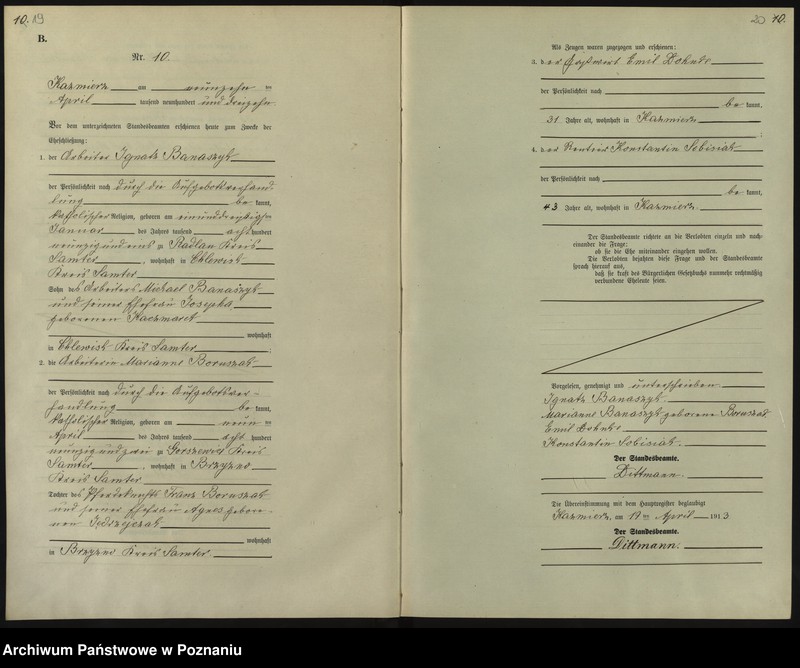 10. 19
B.
Nr. 10.
Kazmierz am neunzehn ten
April tausend neunhundert und dreizehn.
Vor dem unterzeichneten Standesbeamten erschienen heute zum Zwecke der
Eheschließung:
1. der Arbeiter Ignatz Banaszyk
der Persönlichkeit nach durch die Aufgebotsverhand-
lung be kannt,
katholischer Religion, geboren am einunddreißigsten
Januar des Jahres tausend acht hundert
neunzig und eins zu Radlau Kreis
Samter, wohnhaft in Chlewisk
Kreis Samter
Sohn des Arbeiters Michael Banaszyk
und seiner Ehefrau Josepha
geborenen Kaczmarek
wohnhaft
in Chlewisk Kreis Samter.
2. die Arbeiterin Marianne Boruszak
der Persönlichkeit nach durch die Aufgebotsver-
handlung be kannt,
katholischer Religion, geboren am neun ten
April des Jahres tausend acht hundert
neunzig und zwei zu Gorszewice Kreis
Samter, wohnhaft in Brzyzno
Kreis Samter
Tochter des Pferdeknechts Franz Boruszak
und seiner Ehefrau Agnes gebore-
nen Jedrzejczak
wohnhaft
in Brzyzno Kreis Samter
20 10.
Als Zeugen waren zugezogen und erschienen:
3. der Gastwirt Emil Dohnke
der Persönlichkeit nach
be kannt,
31 Jahre alt, wohnhaft in Kazmierz
;
4. der Rentier Konstantin Sobisiak
der Persönlichkeit nach
be kannt,
43 Jahre alt, wohnhaft in Kazmierz.
Der Standesbeamte richtete an die Verlobten einzeln und nach-
einander die Frage:
ob sie die Ehe miteinander eingehen wollen.
Die Verlobten bejahten diese Frage und der Standesbeamte
sprach hierauf aus,
daß sie kraft des Bürgerlichen Gesetzbuchs nunmehr rechtmäßig
verbundene Eheleute seien.
Vorgelesen, genehmigt und unterschrieben
Ignatz Banaszyk
Marianne Banaszyk geborene Boruszak
Emil Dohnke
Konstantin Sobisiak.
Der Standesbeamte.
Dittmann.
Die Übereinstimmung mit dem Hauptregister beglaubigt
Kazmierz, am 19 ten April 1913
Der Standesbeamte.
Dittmann.
Archiwum Państwowe w Poznaniu